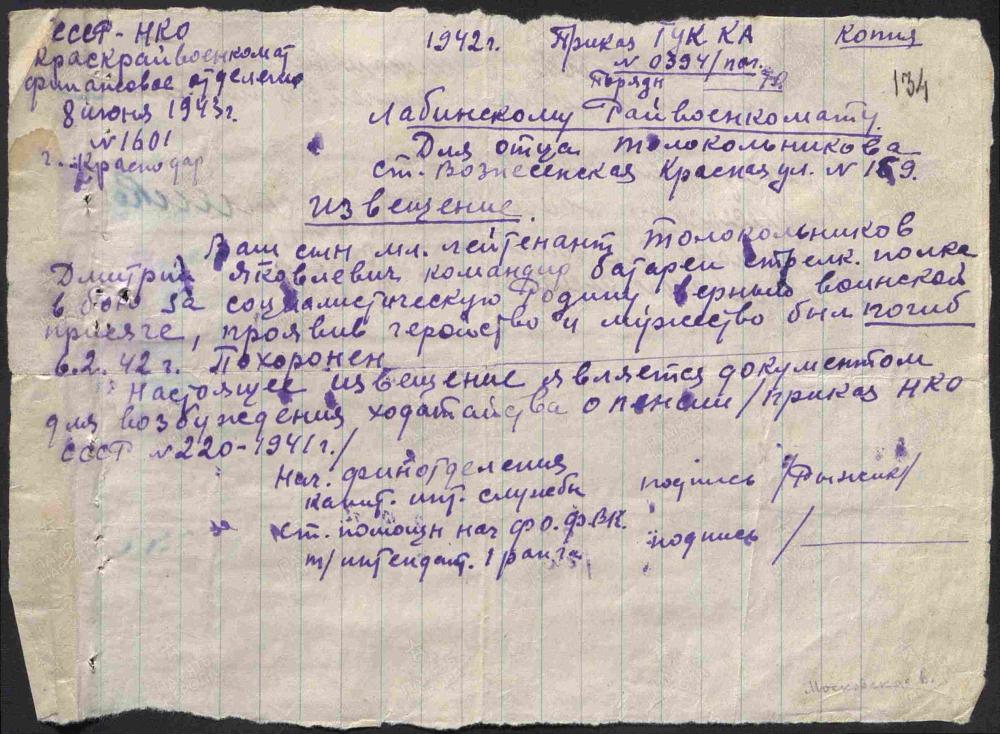 СССР-НКО
Краскрайвоенкомат
финансовое отделение
8 июня 1943г.
N1601
г. Краснодар
1942г.
Приказ ГУК КА
N 0394/пог.
Порядн
Копия
134
Лабинскому Райвоенкомату.
Для отца Толокольникова
ст. Вознесенская Красная ул. N 169.
Извещение.
Ваш сын мл. лейтенант Толокольников
Дмитрий Яковлевич командир батареи стрелк. полка
в бою за социалистическую Родину верный воинской
присяге, проявив геройство и мужество был погиб
6.2.42 г. Похоронен
Настоящее извещение является документом
для возбуждения ходатайства о пенсии/приказ НКО
СССР N220-1941г./
Нач. финотделения
капит. инт. службы подпись /Рыжик/
ст. помощн нач фо. ф.ВК.
т/интендант. 1 ранга подпись /
Московское в.